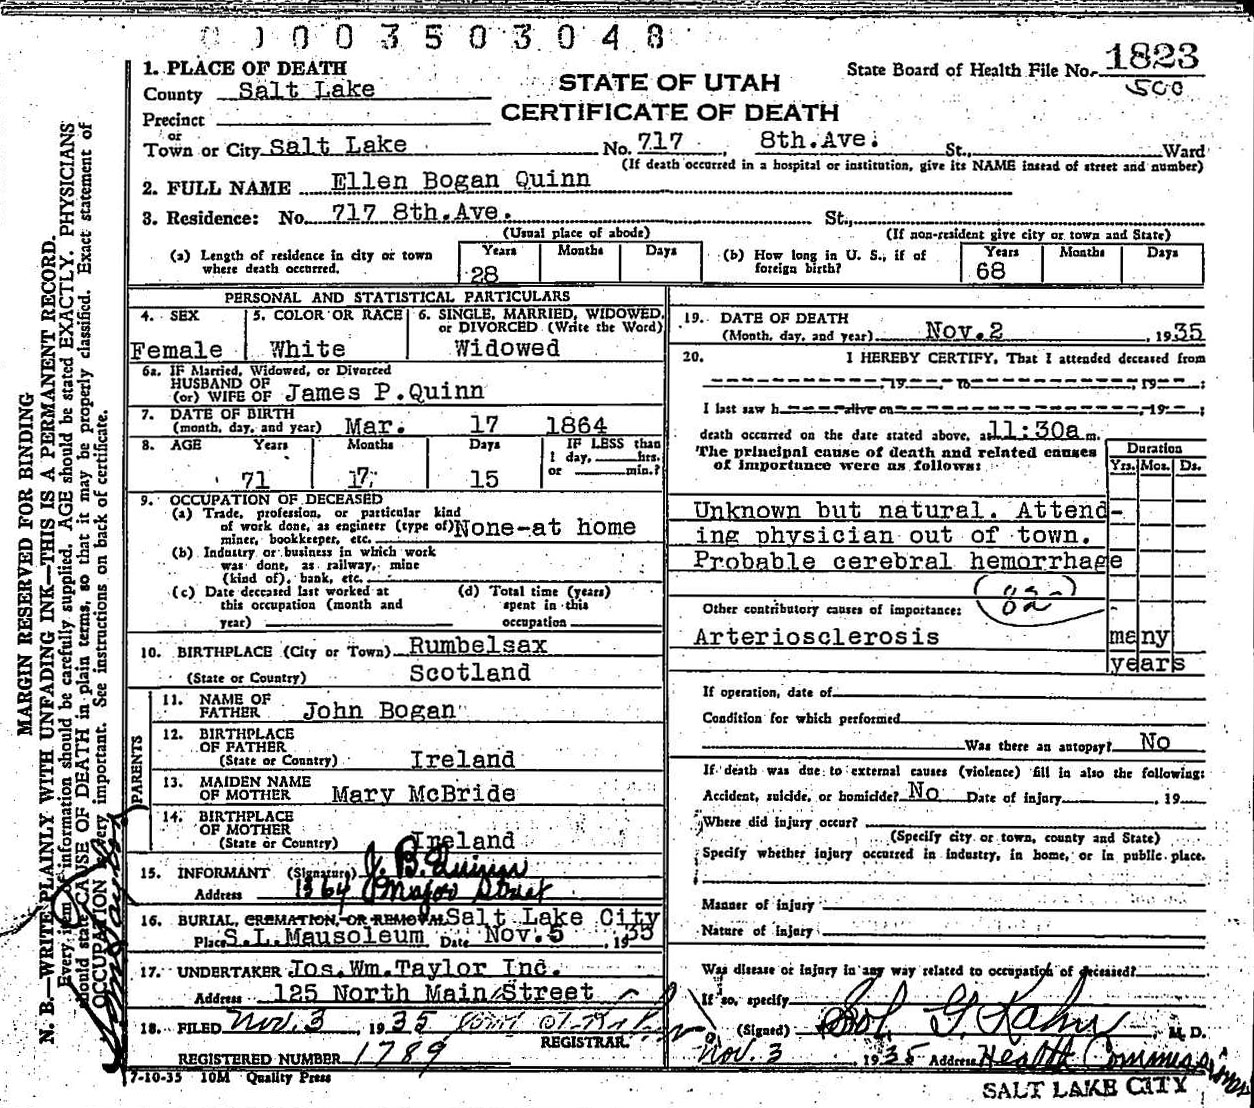 0 0 0 0 3 5 0 3 0 4 8
1. PLACE OF DEATH
County Salt Lake
Precinct
or
Town or City Salt Lake No. 717 8th.Ave. St., Ward
(If death occurred in a hospital or institution, give its NAME instead of street and number)
STATE OF UTAH
CERTIFICATE OF DEATH
State Board of Health File No. 1823
500
2. FULL NAME Ellen Bogan Quinn
3. Residence: No. 717 8th.Ave. St.,
(Usual place of abode) (If non-resident give city or town and State)
(a) Length of residence in city or town where death occurred. Years 28 Months Days
(b) How long in U. S., if of foreign birth? Years 68 Months Days
PERSONAL AND STATISTICAL PARTICULARS
4. SEX Female
5. COLOR OR RACE White
6. SINGLE, MARRIED, WIDOWED, or DIVORCED (Write the Word) Widowed
6a. IF Married, Widowed, or Divorced
HUSBAND OF
(or) WIFE OF James P.Quinn
7. DATE OF BIRTH
(month, day, and year) Mar. 17 1864
8. AGE Years 71 Months 17 Days 15 IF LESS than 1 day, hrs. or min.?
9. OCCUPATION OF DECEASED
(a) Trade, profession, or particular kind
of work done, as engineer (type of)
miner, bookkeeper, etc. None-at home
(b) Industry or business in which work
was done, as railway, mine
(kind of), bank, etc.
(c) Date deceased last worked at
this occupation (month and
year)
(d) Total time (years)
spent in this
occupation
10. BIRTHPLACE (City or Town) Rumbelsax
(State or Country) Scotland
PARENTS
11. NAME OF
FATHER John Bogan
12. BIRTHPLACE
OF FATHER
(State or Country) Ireland
13. MAIDEN NAME
OF MOTHER Mary McBride
14. BIRTHPLACE
OF MOTHER
(State or Country) Ireland
15. INFORMANT (Signature) J. B. Quinn
Address 1364 Major Street
16. BURIAL, CREMATION, OR REMOVAL Salt Lake City
Place S.L.Mausoleum Date Nov.5 , 1935
17. UNDERTAKER Jos.Wm.Taylor Inc.
Address 125 North Main Street
18. FILED Nov. 3 , 1935
REGISTRAR.
REGISTERED NUMBER 1789
7-10-35 10M Quality Press
19. DATE OF DEATH
(Month, day, and year) Nov.2 , 1935
20. I HEREBY CERTIFY, That I attended deceased from
, 19 , to , 19 ;
I last saw h alive on , 19 ;
death occurred on the date stated above, at 11:30a m.
The principal cause of death and related causes
of importance were as follows:
Duration
Yrs. Mos. Ds.
Unknown but natural. Attend-
ing physician out of town.
Probable cerebral hemorrhage
Other contributory causes of importance:
Arteriosclerosis many
years
If operation, date of
Condition for which performed
Was there an autopsy? No
If death was due to external causes (violence) fill in also the following:
Accident, suicide, or homicide? No Date of injury , 19
Where did injury occur?
(Specify city or town, county and State)
Specify whether injury occurred in industry, in home, or in public place.
Manner of injury
Nature of injury
Was disease or injury in any way related to occupation of deceased?
If so, specify
(Signed) Sol G Kahn , M. D.
Nov. 3 1935 Address Health Commissioner
SALT LAKE CITY
MARGIN RESERVED FOR BINDING
N. B.—WRITE PLAINLY WITH UNFADING INK—THIS IS A PERMANENT RECORD.
Every item of information should be carefully supplied. AGE should be stated EXACTLY. PHYSICIANS
should state CAUSE OF DEATH in plain terms, so that it may be properly classified. Exact statement of
OCCUPATION very important. See instructions on back of certificate.